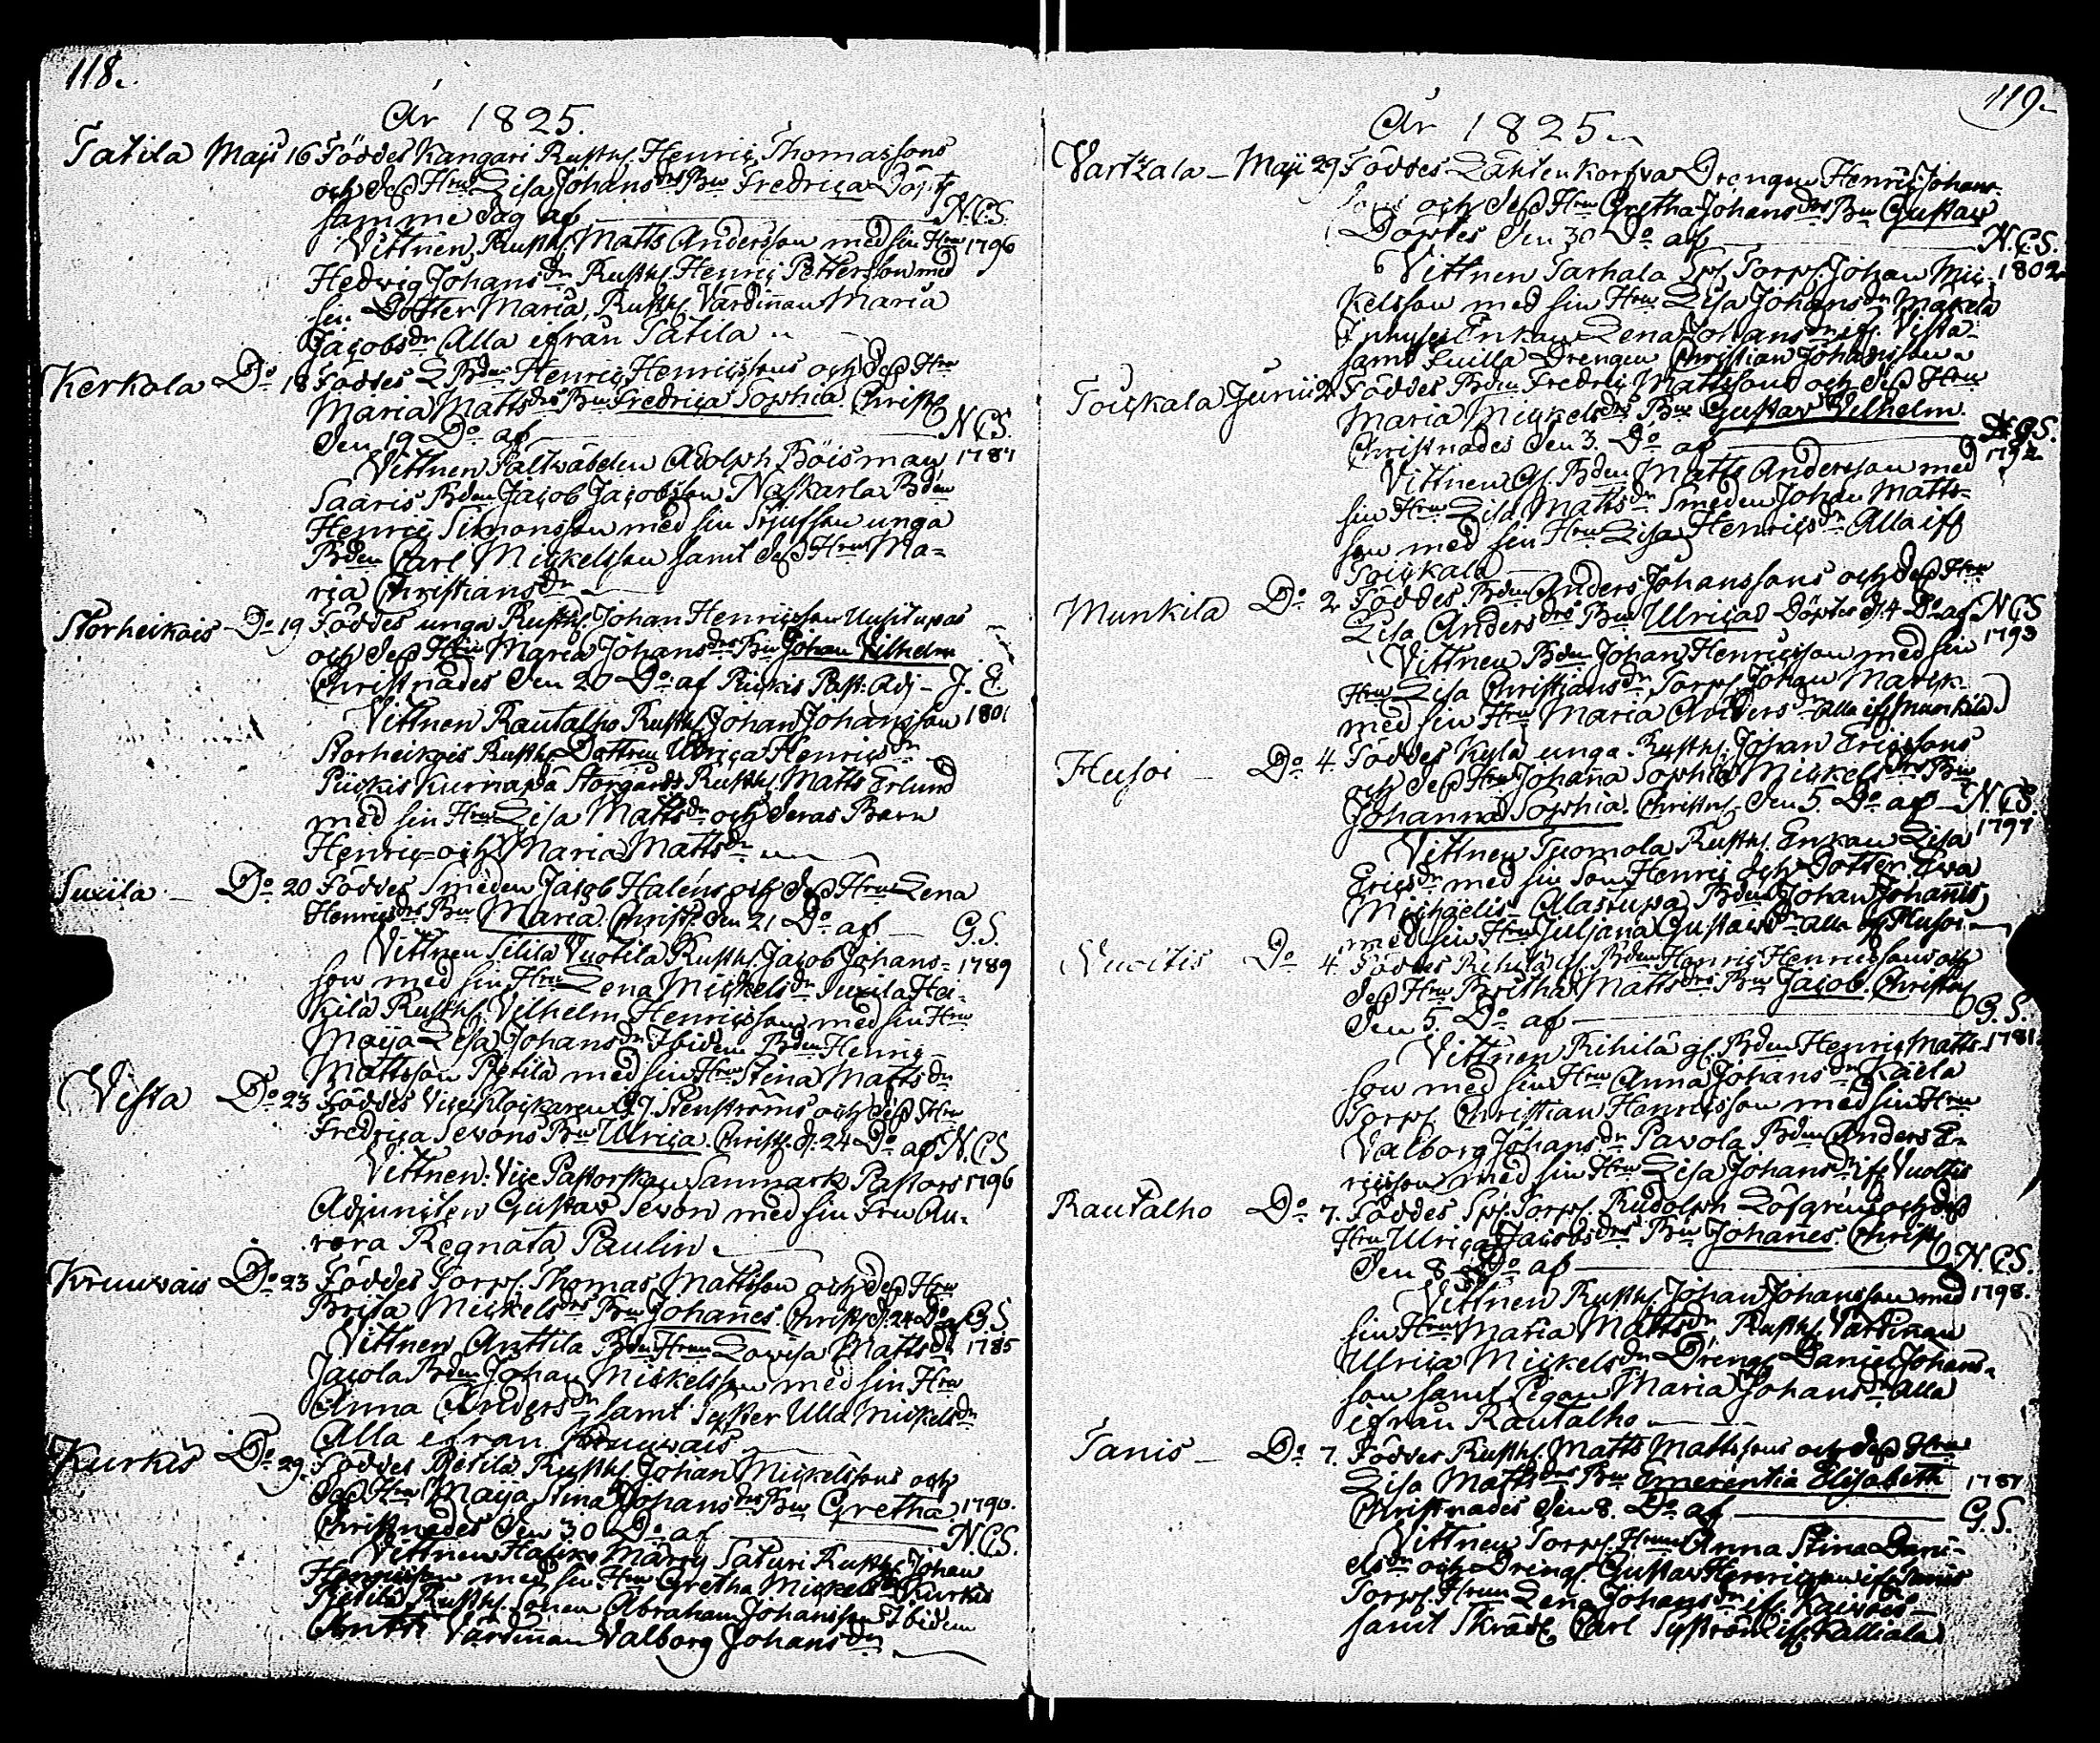 118.
År 1825.
Tatila Maji 16 Föddes Kangari Rusth. Henric Thomassons
och dess Hru Lisa Johansdrs Bn Fredrica Döpt
samme dag af N.C.S.
Vittnen, Rusth. Matts Andersson med sin Hru 1796
Hedwig Johansdr Rusth. Henric Pettersson med
sin Dotter Maria, Rusth. Värdinnan Maria
Jacobsdr Alla ifrån Tatila
Kerkola Do 18 Föddes Bden Henric Henricssons och dess Hru
Maria Mattsdrs Bn Fredrica Sophia Christ.
den 19 Do af N.C.S.
Vittnen Fältväbeln Adolph Böisman 1787
Saaris Bden Jacob Jacobsson Naskarla Bden
Henric Simonsson med sin Stjufson unga
Bden Carl Mickelsson samt dess Hru Ma-
ria Christiansdr
Storheikois Do 19 Föddes unga Rusth. Johan Henricsson Uusitupas
och dess Hru Maria Johansdrs Bn Johan Vilhelm
Christnades den 20 Do af Piikis Past. Adj. J. E
Vittnen Rautalho Rusth. Johan Johansson 1801
Storheikois Rusth. Dottren Ulrica Henricsdr
Piickis Kurnapää Storgårds Rusth. Matts Erlund
med sin Hru Lisa Mattsdr och deras Barn
Henric och Maria Mattsdr
Suxila Do 20 Föddes Smeden Jacob Haléns och dess Hru Lena
Henricsdrs Bn Maria. Christ. den 21 Do af G.S.
Vittnen Silila Vuotila Rusth. Jacob Johans- 1789
son med sin Hru Lena Mickelsdr Suxila Hei-
kilä Rusth. Vilhelm Henricsson med sin Hru
Maija Lisa Johansdr Ibidem Bden Henric
Mattsson Pietilä med sin Hru Stina Mattsdr
Vista Do 23 Föddes Vice Klockaren J. Stenströms och dess Hru
Fredrica Sevons Bn Ulrica. Christ. d. 24 Do af N.C.S
Vittnen: Vice Pastorskan Sanmark Pastors 1796
Adjuncten Gustav Sevon med sin Fru Au-
rora Regnata Paulin.
Kruuvais Do 23 Föddes Torp. Thomas Mattsson och dess Hru
Brita Mickelsdrs Bn Johannes. Christ. d. 24 Do af G.S
Vittnen Anttila Bde Hrun Lovisa Mattsdr 1785
Jacola Bden Johan Mickelsson med sin Hru
Anna Andersdr samt Syster Ulla Mickelsdr
Alla ifrån Kruuvais
Kurkis Do 29 Föddes Pietilä Rusth. Johan Mickelssons och
dess Hru Maija Stina Johansdrs Bn Gretha 1790.
Christnades den 30 Do af N.C.S.
Vittnen Halikko Märry Saturi Rusth. Johan
Henricsson med sin Hru Gretha Mickelsdr Kurkis
Pietilä Rusth. Sonen Abraham Johansson Ibidem
Antti Värdinnan Valborg Johansdr
119.
År 1825.
Vartsala Maji 29 Föddes Lähteenkorfva Drengen Henric Johans-
sons och dess Hru Gretha Johansdrs Bn Gustav
Döptes den 30 Do af N.C.S.
Vittnen Tarhala Torp. Johan Mic- 1802
kelsson med sin Hru Lisa Johansdr Makela
Inhyses Enkan Lena Johansdr ifr. Vista
samt Luilla Drengen Christian Johansson
Toickala Junii 2 Föddes Bden Fredric Mattssons och dess Hru
Maria Mickelsdrs Bn Gustav Vilhelm.
Christnades den 3. Do af G.S.
1792
Vittnen Gl. Bden Matts Andersson med
sin Hru Lisa Mattsdr Smeden Johan Matts-
son med sin Hru Lisa Henricsdr Alla ifr
Toickala
Munkila Do 2 Föddes Bden Anders Johanssons och dess Hru
Lisa Andersdrs Bn Ulrica Döptes d. 4 Do af N.C.S
Vittnen Bden Johan Henricsson med sin 1793
Hru Lisa Christiansdr Torp. Johan Marck
med sin Hru Maria Andersdr Alla ifr Munkila
Husoi Do 4. Föddes Kylä unga Rusth. Johan Ericssons
och dess Hru Johanna Sophia Mickelsdrs Bn
Johanna Sophia. Christn. den 5. Do af N.C.S
Vittnen Tuomola Rusth. Enkan Lisa 1797
Ericsdr med sin Son Henric och Dotter Eva
Michaelis Alastupa Bden Johan Johans
med sin Hru Juliana Gustavsdr Alla af Husoi
Vuoitis Do 4 Föddes Rihilä Bden Henric Henricssons och
dess Hru Britha Mattsdrs Bn Jacob. Christn.
den 5. Do af G.S.
Vittnen Rihilä gl. Bden Henric Matts- 1781
son med sin Hru Anna Johansdr Kaela
Torp. Christian Henricsson med sin Hru
Valborg Johansdr Pavola Bden Anders E-
ricsson med sin Hru Lisa Johansdr ifr Vuoltis
Rautalho Do 7. Föddes Torp. Rudolph Löfgréns och dess
Hru Ulrica Jacobsdrs Bn Johannes. Christ.
den 8 Do af N.C.S.
Vittnen Rusth. Johan Johansson med 1798.
sin Hru Maria Mattsdr, Rusth. Värdinnan
Ulrica Mickelsdr Dreng. Daniel Johans-
son samt Pigan Maria Johansdr Alla
ifrån Rautalho
Tanis Do 7. Föddes Rusth. Matts Mattssons och dess Hru
Lisa Mattsdrs Bn Emerentia Elisabeth 1787
Christnades den 8. Do af G.S.
Vittnen Torp. Hrun Anna Stina Dani-
elsdr och Dreng. Gustav Henricsson ifr Tanis
Torp. Hrun Lena Johansdr ifr Kaivois
samt Skräd. Carl Syström ifr Kalliala